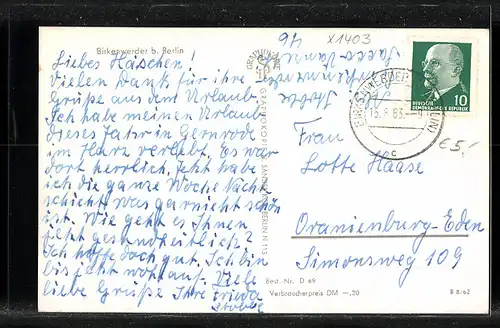 Birkenwerder b. Berlin
Liebes Häschen!
Vielen Dank für ihre
Grüße aus dem Urlaub.
Ich habe meinen Urlaub
dieses Jahr in Gernrode
im Harz verlebt. Es war
dort herrlich. Jetzt habe
ich die ganze Woche Nacht
schicht, was gar nicht schön
ist. Wie geht es Ihnen
jetzt gesundheitlich?
Ich hoffe doch gut. Ich bin
bis jetzt wohlauf. Viele
liebe Grüße Ihre
X1403
DEUTSCHE
DEMOKRATISCHE REPUBLIK
10
15.8.63.
c
€5,-
Frau
Lotte Haase
Oranienburg-Eden
Simonsweg 109
Best.-Nr. D 69
Verbraucherpreis DM —,20
B 8/62